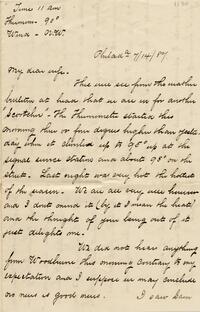 Time 11 am
Thermom - 90°
Wind - N.W.
Philada 7/14/87
My dear wife.
This eve see from the weather
bulletin at head that we are in for another
"Scorcher". The Thermometer started this
morning three or four degrees higher than yester-
day when it climbed up to 95° up at the
signal service station and about 98° on the
street. Last night was very hot the hottest
of the season. We are all very well however
and I don't mind it (by it I mean the heat)
and the thought of your being out of it
just delights me.
We did not hear anything
from Woodbine this morning contrary to my
expectation and I suppose we may conclude
no news is good news. I saw Sam